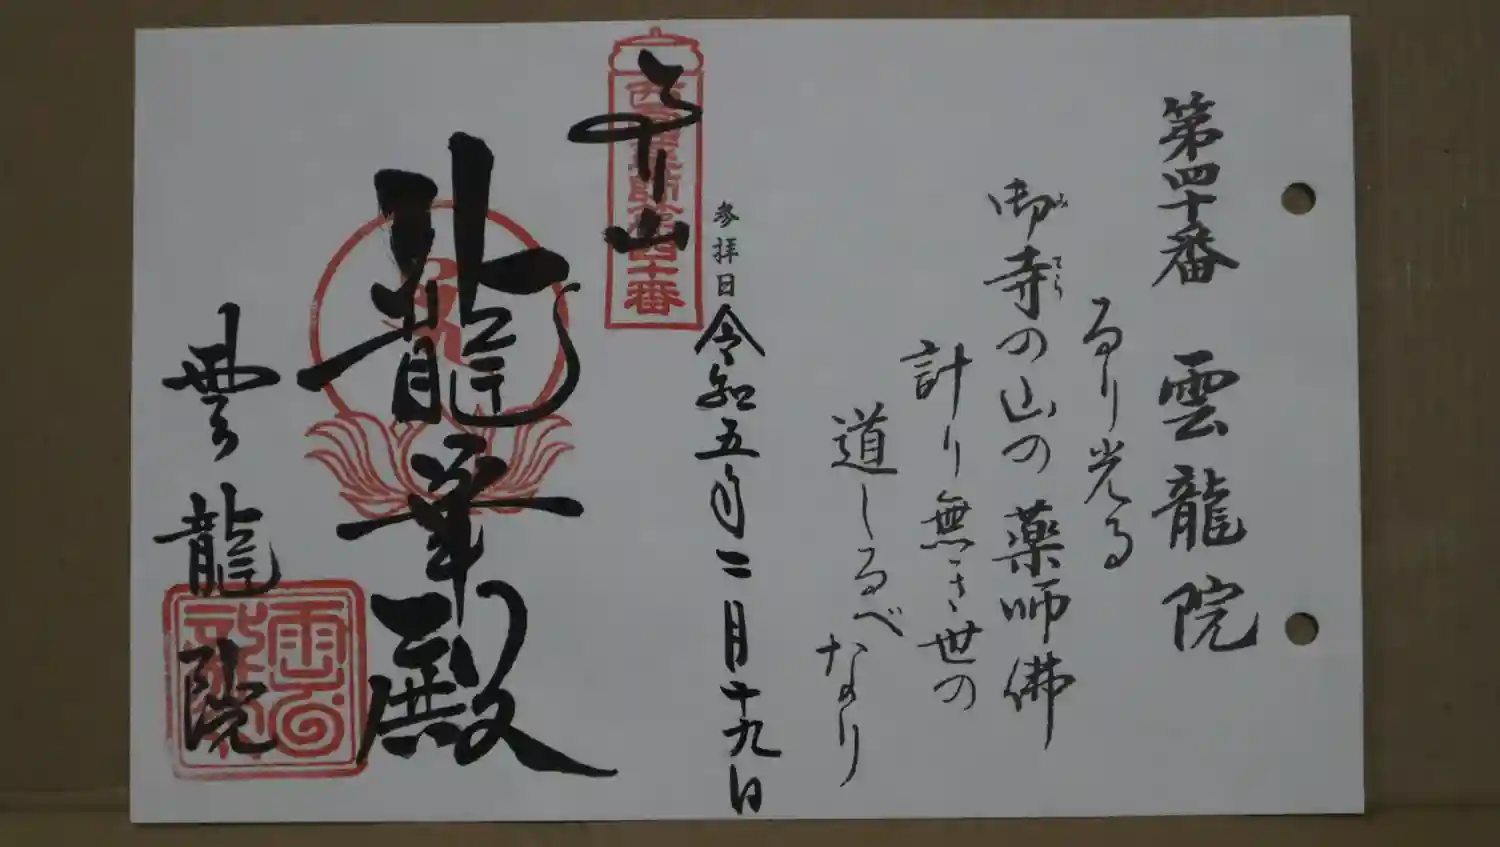 第四十番 雲龍院
るり光る
御寺の山の薬師佛
みてら
計り無き世の
道しるべ
なり
参拝日 令和五年二月十九日
西国薬師第四十番
るり山
龍華殿
雲龍院